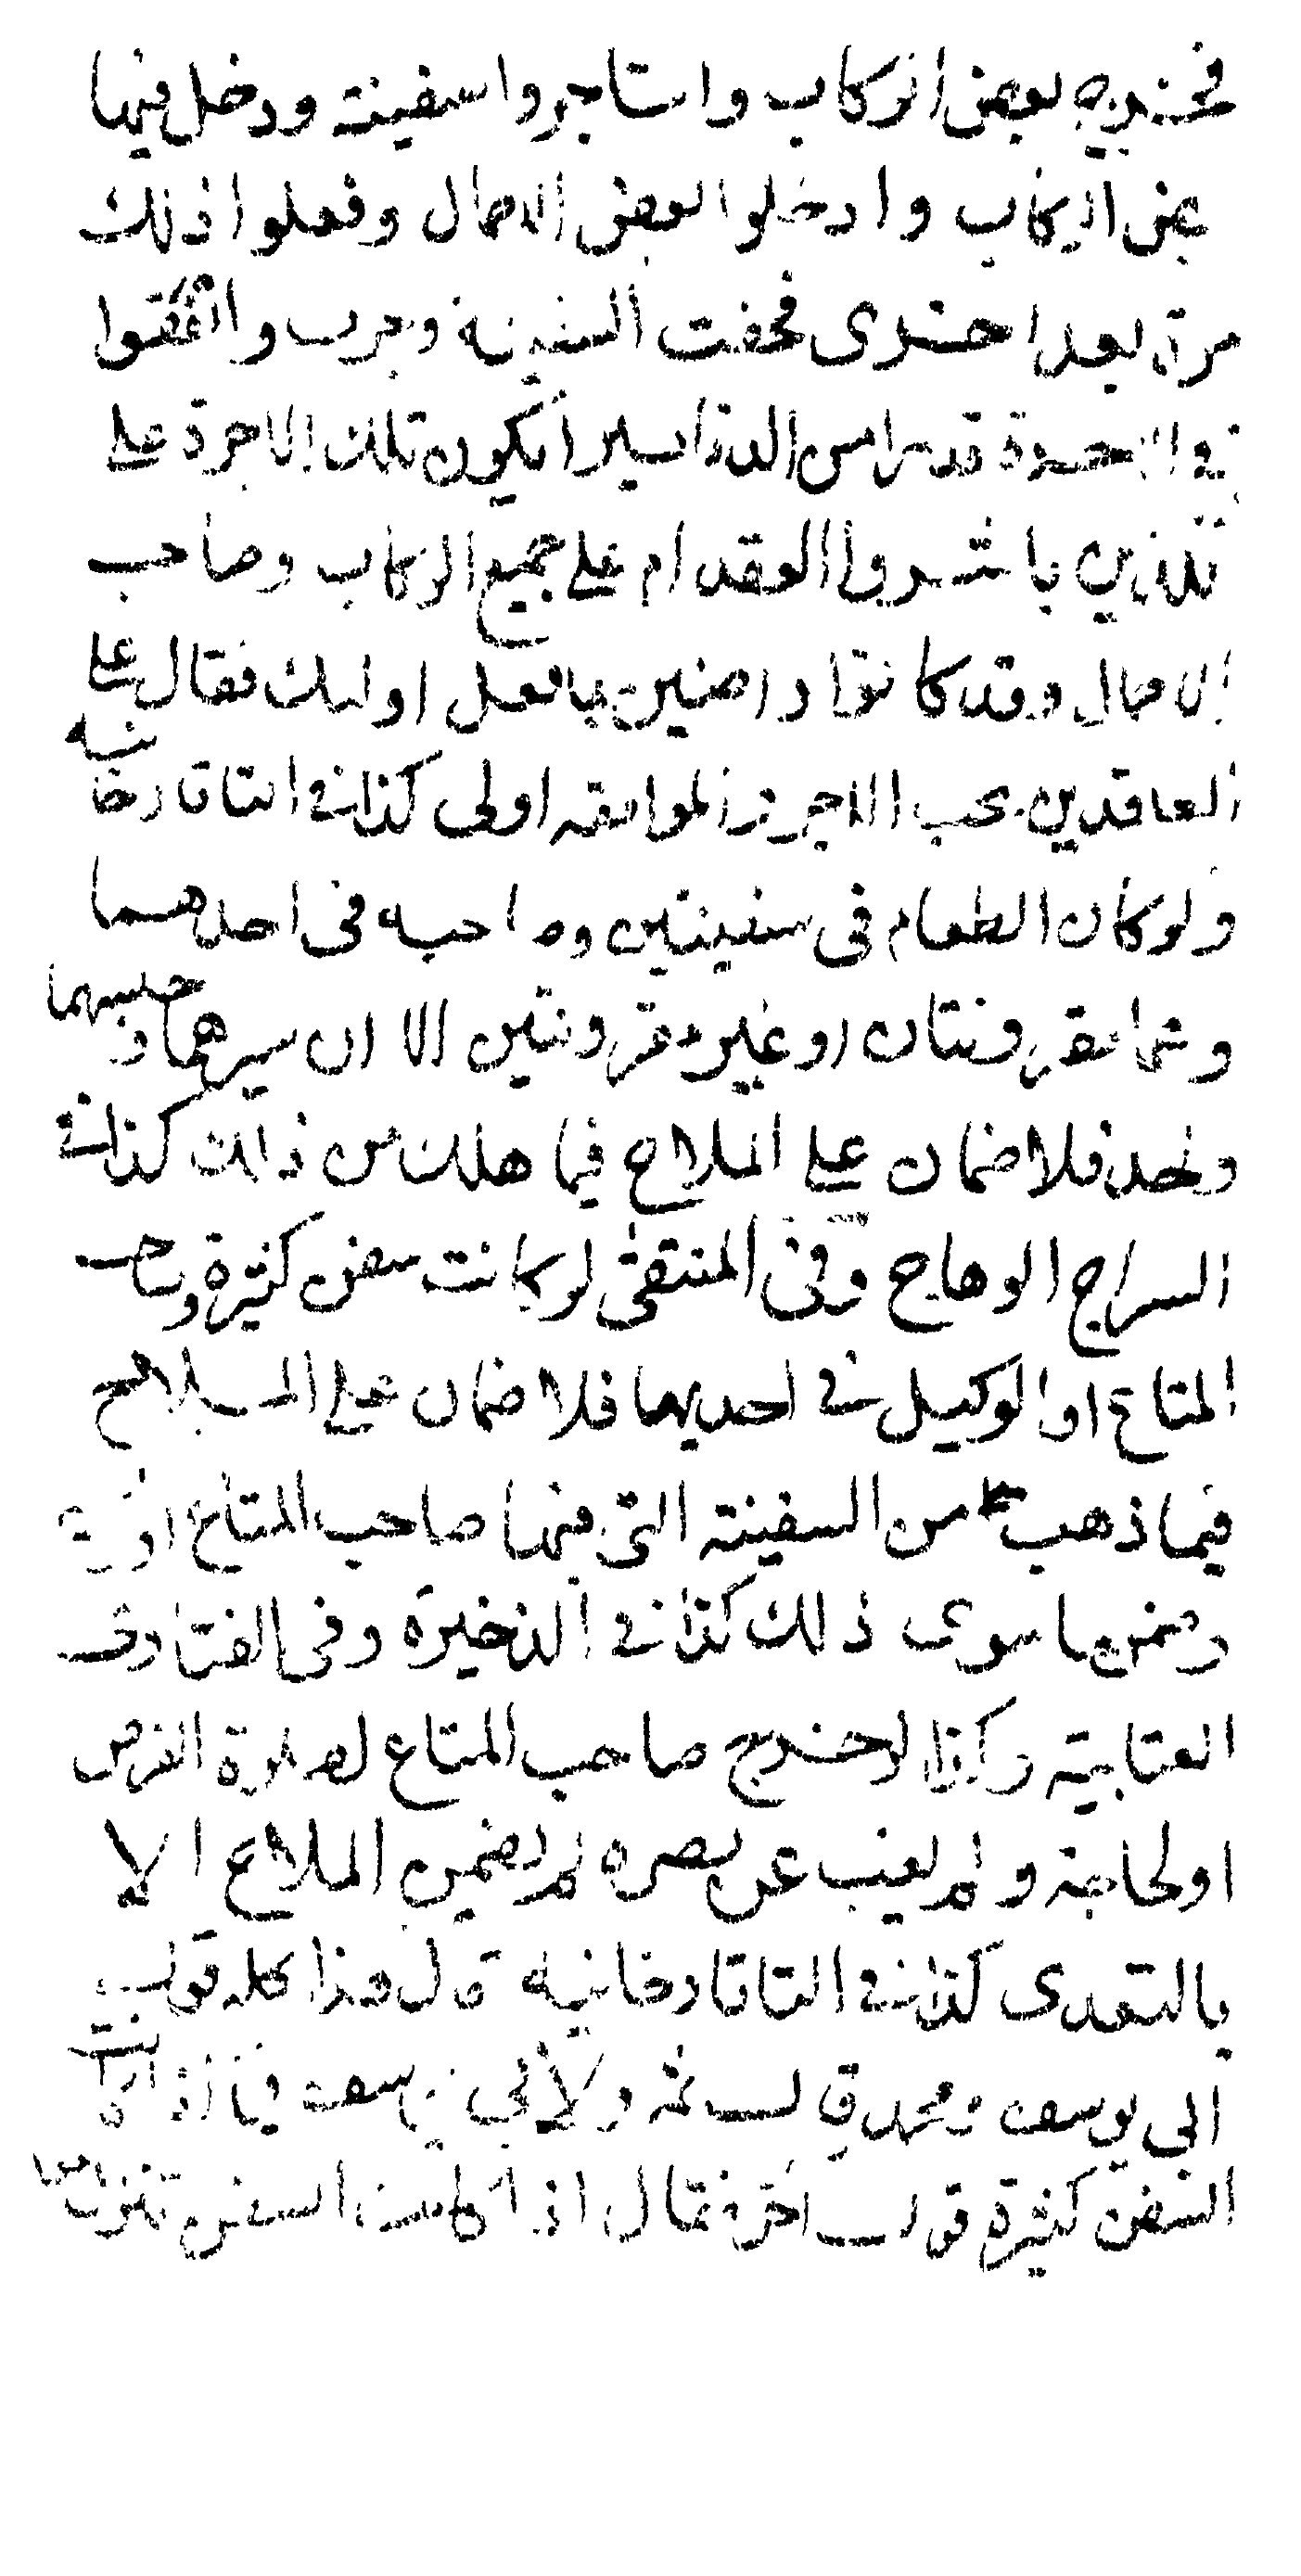 فخرج بعض الركاب واستاجروا سفينة ودخل فيها
بعض الركاب وادخلوا بعض الاحمال وفعلوا ذلك
مرة بعد اخرى فخفت السفينة وجرت واتفقوا
في الاجرة قدرا من الدنانير ايكون تلك الاجرة على
الذين باشروا العقد ام على جميع الركاب وصاحب
الاحمال وقد كانوا راضين بما فعل اولئك فقال على
العاقدين يجب الاجر والموافقه اولى كذا في التاتارخانيه
ولو كان الطعام في سفينتين وصاحبه في احدهما
وهما مقرونتان او غير مقرونتين الا ان سيرهما وحبسهما
واحد فلا ضمان على الملاح فيما هلك من ذلك كذا في
السراج الوهاج وفي المنتقى لو كانت سفن كثيرة وصاحب
المتاع او الوكيل في احديهما فلا ضمان على الملاح
فيما ذهب من السفينة التي فيها صاحب المتاع او
وضمن ما سوى ذلك كذا في الذخيرة وفي الفتاوى
العتابية وكذا لو خرج صاحب المتاع لصلاة الفرض
او لحاجة ولم يغب عن بصره لم يضمن الملاح الا
بالتعدى كذا في التاتارخانيه قال هذا كله قول
ابي يوسف ومحمد قال ثمه ولابي يوسف فيما اذا كانت
السفن كثيرة قول اخر فقال اذا كانت السفن تنزل معا